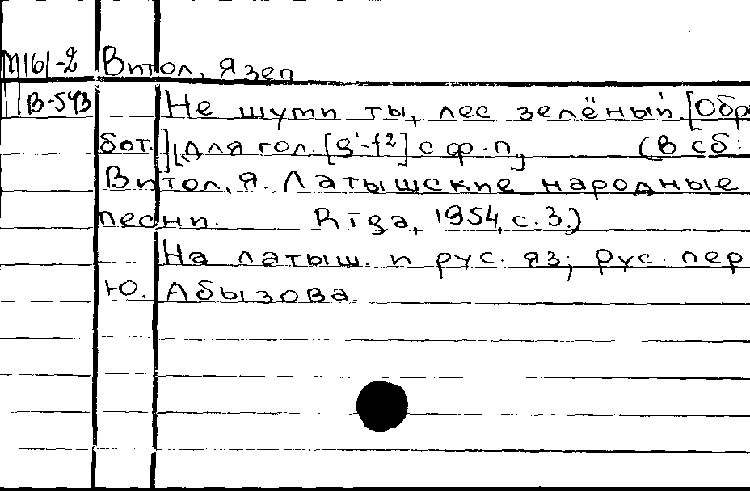 М161-2 Витол, Язеп
В-543 Не шуми ты, лес зелёный. [Обра
бот.] [Для гол. [g¹-f²] с ф.-п., (В сб:
Витол, Я. Латышские народные
песни. Rīga, 1954, с. 3.)
На латыш. и рус. яз; рус. пер
Ю. Абызова.